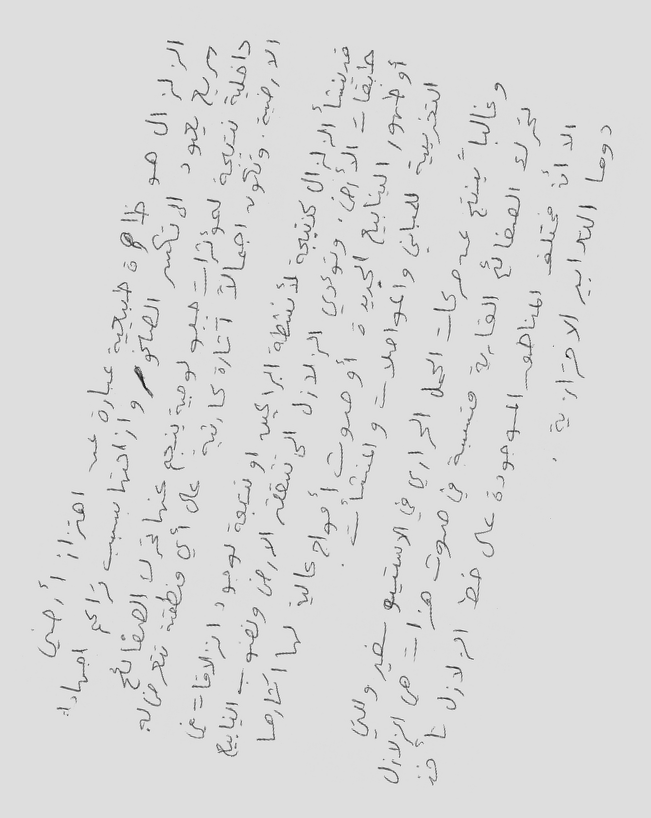 الزلزال هو ظاهرة طبيعية عبارة عن اهتزاز أرضي
سريع يعود الى تكسر الصخور وازاحتها بسبب تراكم اجهادات
داخلية نتيجة لمؤثرات جيولوجية ينجم عنها تحرك الصفائح
الارضية. وتكون اجمالا آثاره كارثية على أي منطقة تتعرض له.
قد ينشأ الزلزال كنتيجة لأنشطة البراكين او نتيجة لوجود انزلاقات في
طبقات الأرض، وتؤدي الزلازل الى تشقق الارض ونضوب الينابيع
أو ظهور الينابيع الجديدة أو حدوث أمواج عالية لها آثارها
التخريبية للمباني والمواصلات والمنشآت.
وغالبا ينتج عن حركات الحمل الحراري في الاستينوسفير والتي
تحرك الصفائح القارية متسببة في حدوث هزات هي الزلازل
الا أن مختلف المناطق الموجودة على خط الزلازل تأخذ
دوما التدابير الاحترازية.